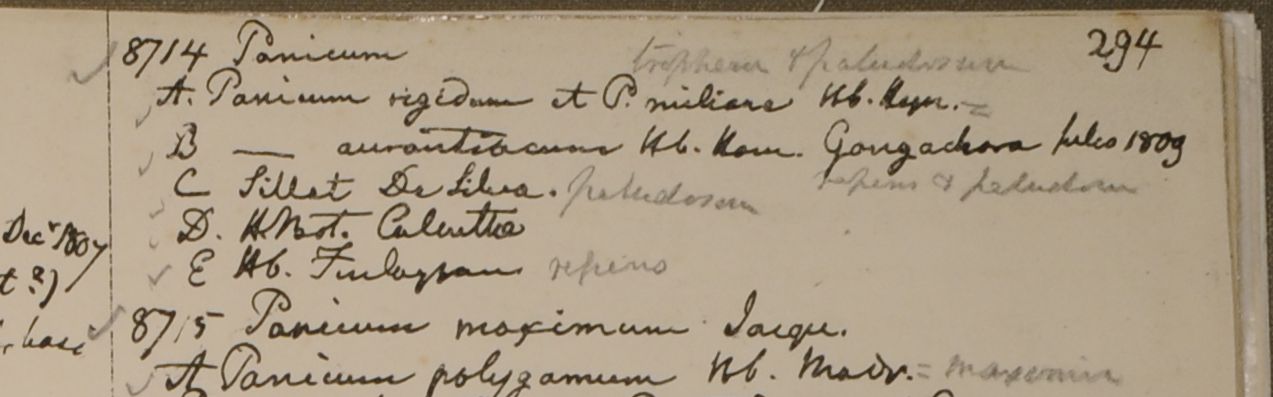 294
8714 Panicum
A. Panicum rigidum et P. miliare Hb. Heyn. =
B — aurantiacum Hb. Ham. Gongachora 1809
repens & paludosum
C Sillet De Silva. paludosum
D. H. Bot. Calcutta
E Hb. Finlayson repens
Decr 1807
t ?)
8715 Panicum maximum Jacqu.
A Panicum polygamum Hb. Madr. = maximum